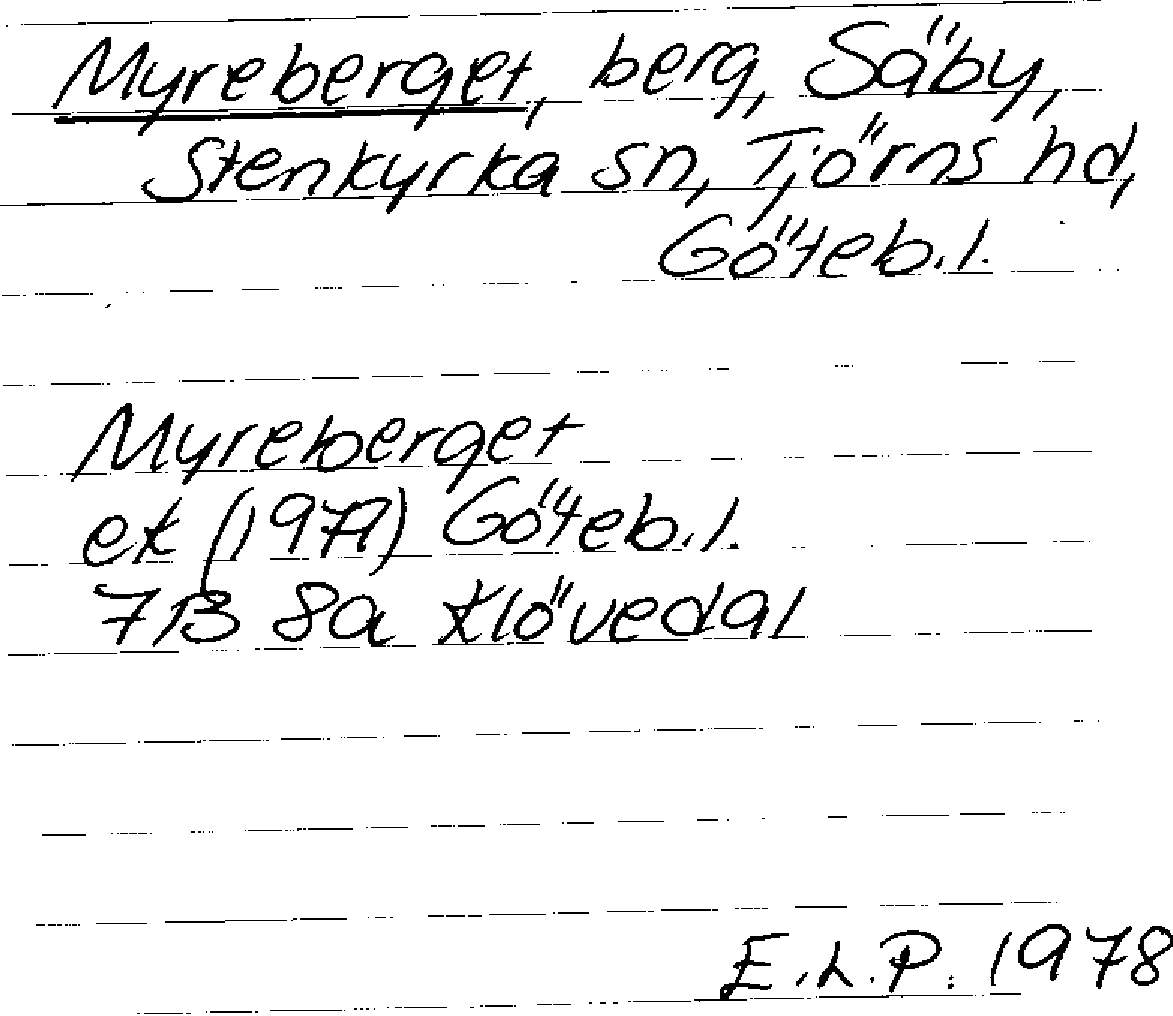 Myreberget, berg, Säby,
Stenkyrka sn, Tjörns hd,
Göteb.l.
Myreberget
ek (1977) Göteb.l.
7B 8a Klövedal
E.L.P. 1978